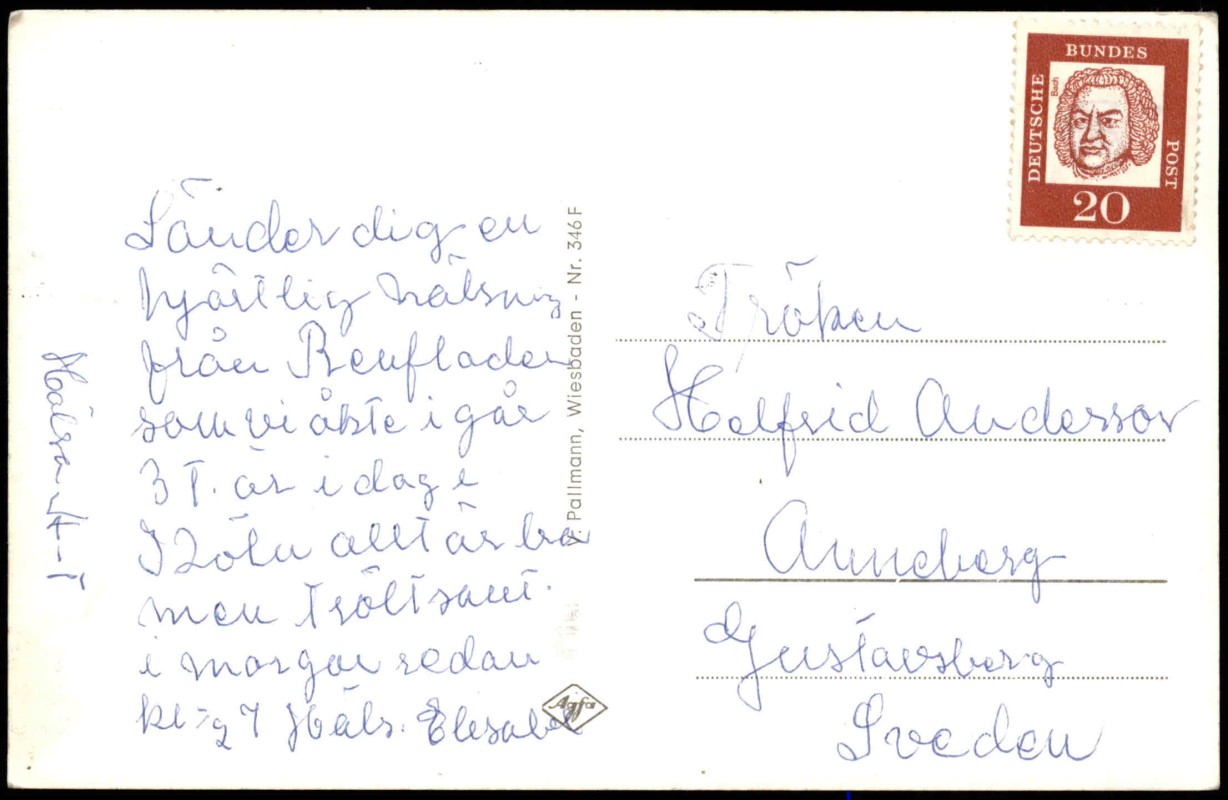 Sänder dig en
hjärtlig hälsning
från Renfloden
som vi åkte i går
3 T. är i dag i
Köln allt är bra
men tröttsamt.
i morgon redan
kl
Häls. Elisabet
Hälsa
V. Pallmann, Wiesbaden - Nr. 346 F
Agfa
DEUTSCHE
BUNDES
POST
Bach
20
Fröken
Helfrid Andersson
Anneberg
Gustavsberg
Sveden